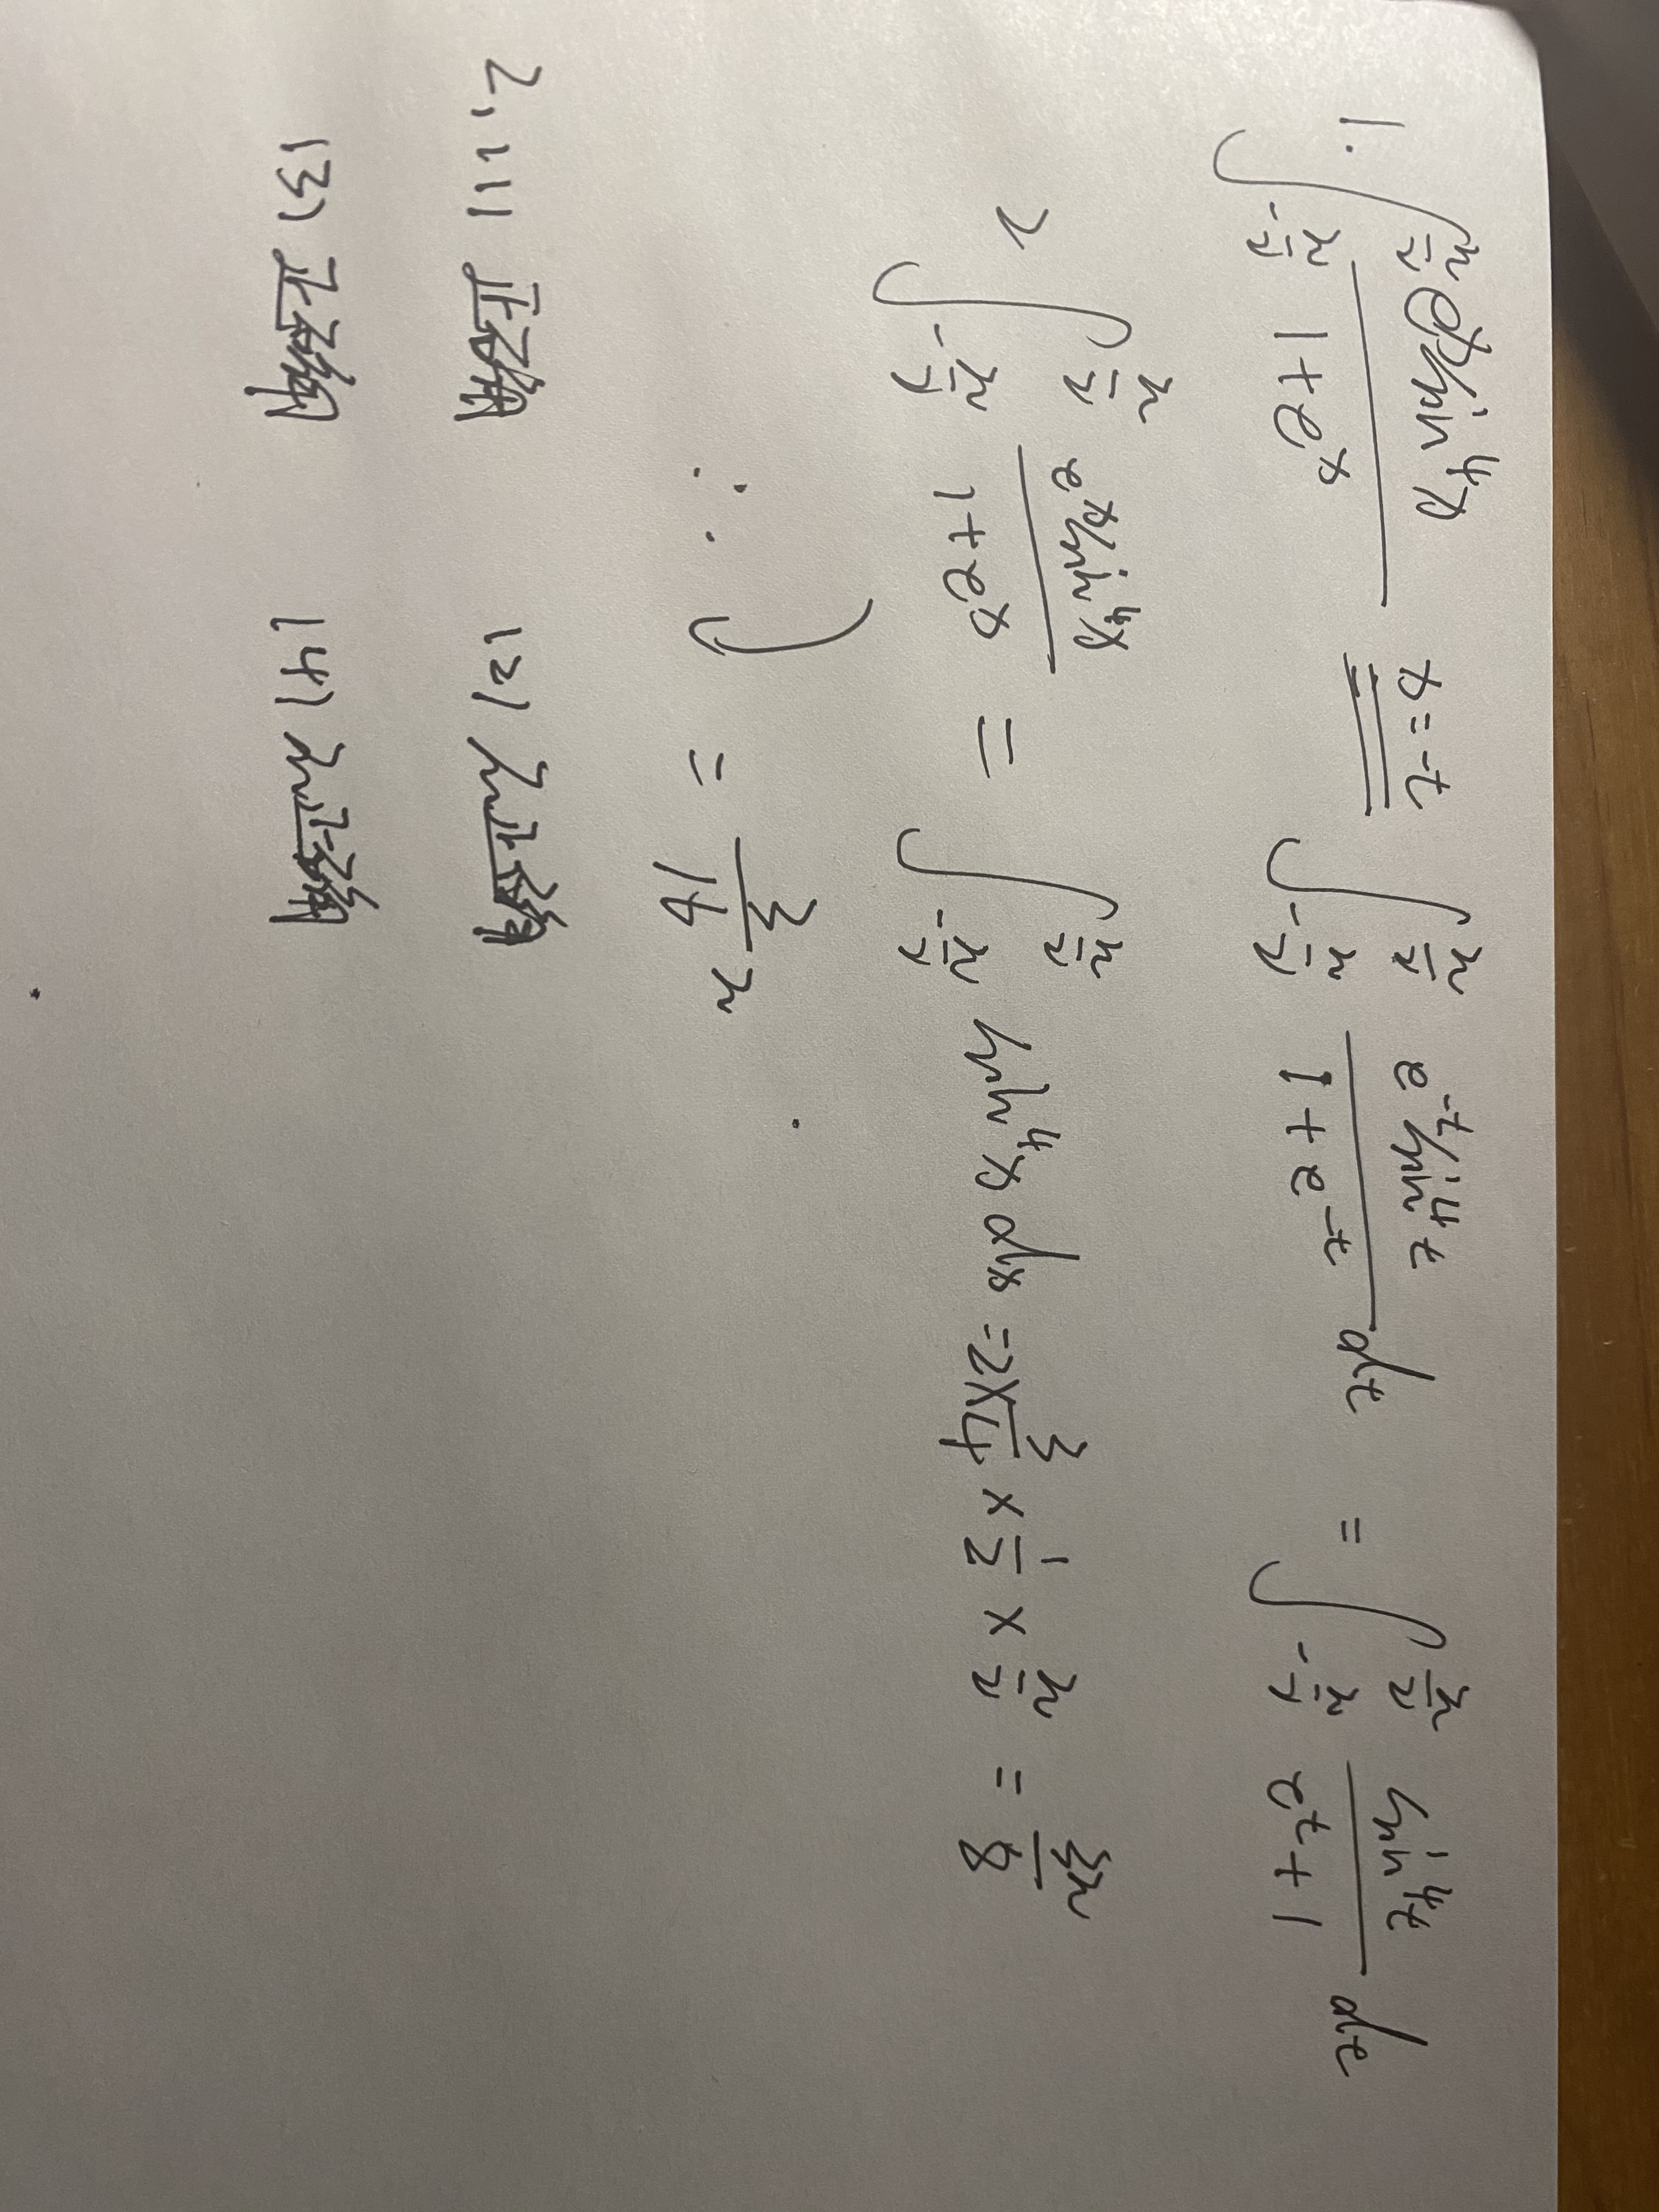 1. ∫_{-π/2}^{π/2} e^x sin^4 x / (1+e^x) x=-t ═ ∫_{-π/2}^{π/2} e^{-t} sin^4 t / (1+e^{-t}) dt = ∫_{-π/2}^{π/2} sin^4 t / (e^t+1) dt
2 ∫_{-π/2}^{π/2} e^x sin^4 x / (1+e^x) = ∫_{-π/2}^{π/2} sin^4 x dx = 2×3/4 × 1/2 × π/2 = 3π/8
∴ ∫ = 3/16 π
2. (1) 正确 (2) 不正确
(3) 正确 (4) 不正确